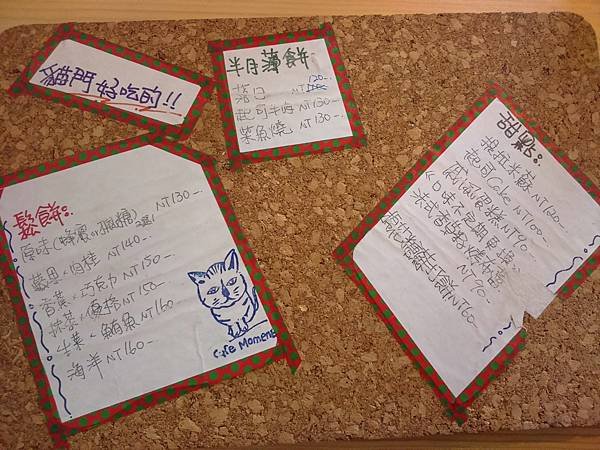 貓門好吃的!!
半月薄餅
NT120-
起司牛奶 NT130-
柴魚燒 NT130-
鬆餅:
原味(蜂蜜or楓糖) NT130-
2選1
NT140-
香蕉×巧克力 NT150-
抹茶× NT150-
生菜×鮪魚 NT160
海洋 NT160-
Cafe Moment
甜點:
提拉米蘇 NT120-
起司Cake NT100
戚風蛋糕 NT90
《口味不定期更換》
法式香草 NT90-
NT60-